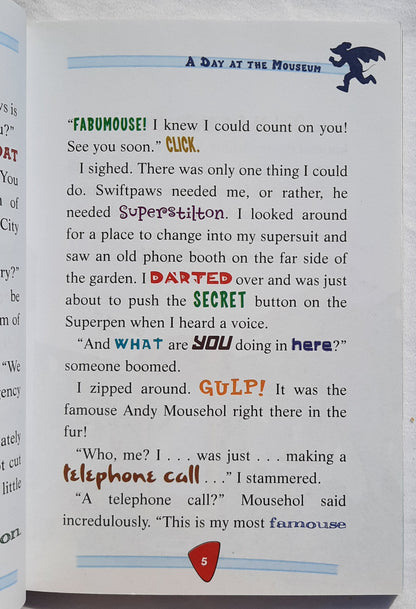 ys is
u?"
OAT
You
n of
City
ry?"
be
m of
"We
ency
ately
ot cut
little
on
A DAY AT THE MOUSEUM
"FABUMOUSE! I knew I could count on you!
See you soon." CLICK.
I sighed. There was only one thing I could
do. Swiftpaws needed me, or rather, he
needed Superstilton. I looked around
for a place to change into my supersuit and
saw an old phone booth on the far side of
the garden. I DARTED over and was just
about to push the SECRET button on the
Superpen when I heard a voice.
"And WHAT are YOU doing in here?"
someone boomed.
I zipped around. GULP! It was the
famouse Andy Mousehol right there in the
fur!
"Who, me? I . . . was just . . . making a
telephone call . . ." I stammered.
"A telephone call?" Mousehol said
incredulously. "This is my most famouse
5